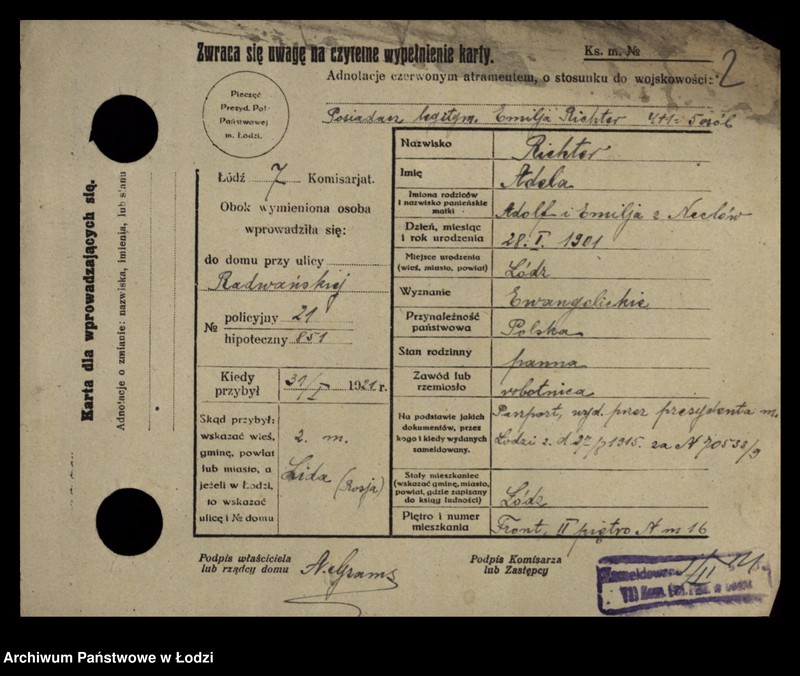 Zwraca się uwagę na czytelne wypełnienie karty.
Ks. m. №
Adnotacje czerwonym atramentem, o stosunku do wojskowości:
2
Posiadacz legitym. Emilja Richter 4+1=5 osób
Pieczęć
Prezyd. Pol.
Państwowej
m. Łodzi.
Łódź 7 Komisarjat.
Obok wymieniona osoba
wprowadziła się:
do domu przy ulicy
Radwańskiej
№ policyjny 21
hipoteczny 851
Kiedy przybył 31/I 1921 r.
Skąd przybył:
wskazać wieś,
gminę, powiat
lub miasto, a
jeżeli w Łodzi,
to wskazać
ulicę i № domu
z. m.
Lida (Rosja)
Nazwisko Richter
Imię Adela
Imiona rodziców
i nazwisko panieńskie
matki
Adolf i Emilja z Neclów
Dzień, miesiąc
i rok urodzenia
28. I. 1901
Miejsce urodzenia
(wieś, miasto, powiat)
Łódź
Wyznanie Ewangelickie
Przynależność
państwowa
Polska
Stan rodzinny panna
Zawód lub
rzemiosło
robotnica
Na podstawie jakich
dokumentów, przez
kogo i kiedy wydanych
zameldowany.
Paszport, wyd. przez prezydenta m.
Łodzi z. d. 1915. za N 70533/9
Stały mieszkaniec
(wskazać gminę, miasto,
powiat, gdzie zapisany
do ksiąg ludności)
Łódź
Piętro i numer
mieszkania
Front, II piętro N m 16
Podpis właściciela
lub rządcy domu
Podpis Komisarza
lub Zastępcy
Zameldowano
VII Kom.
Karta dla wprowadzających się.
Adnotacje o zmianie: nazwiska, imienia, lub stanu
Archiwum Państwowe w Łodzi